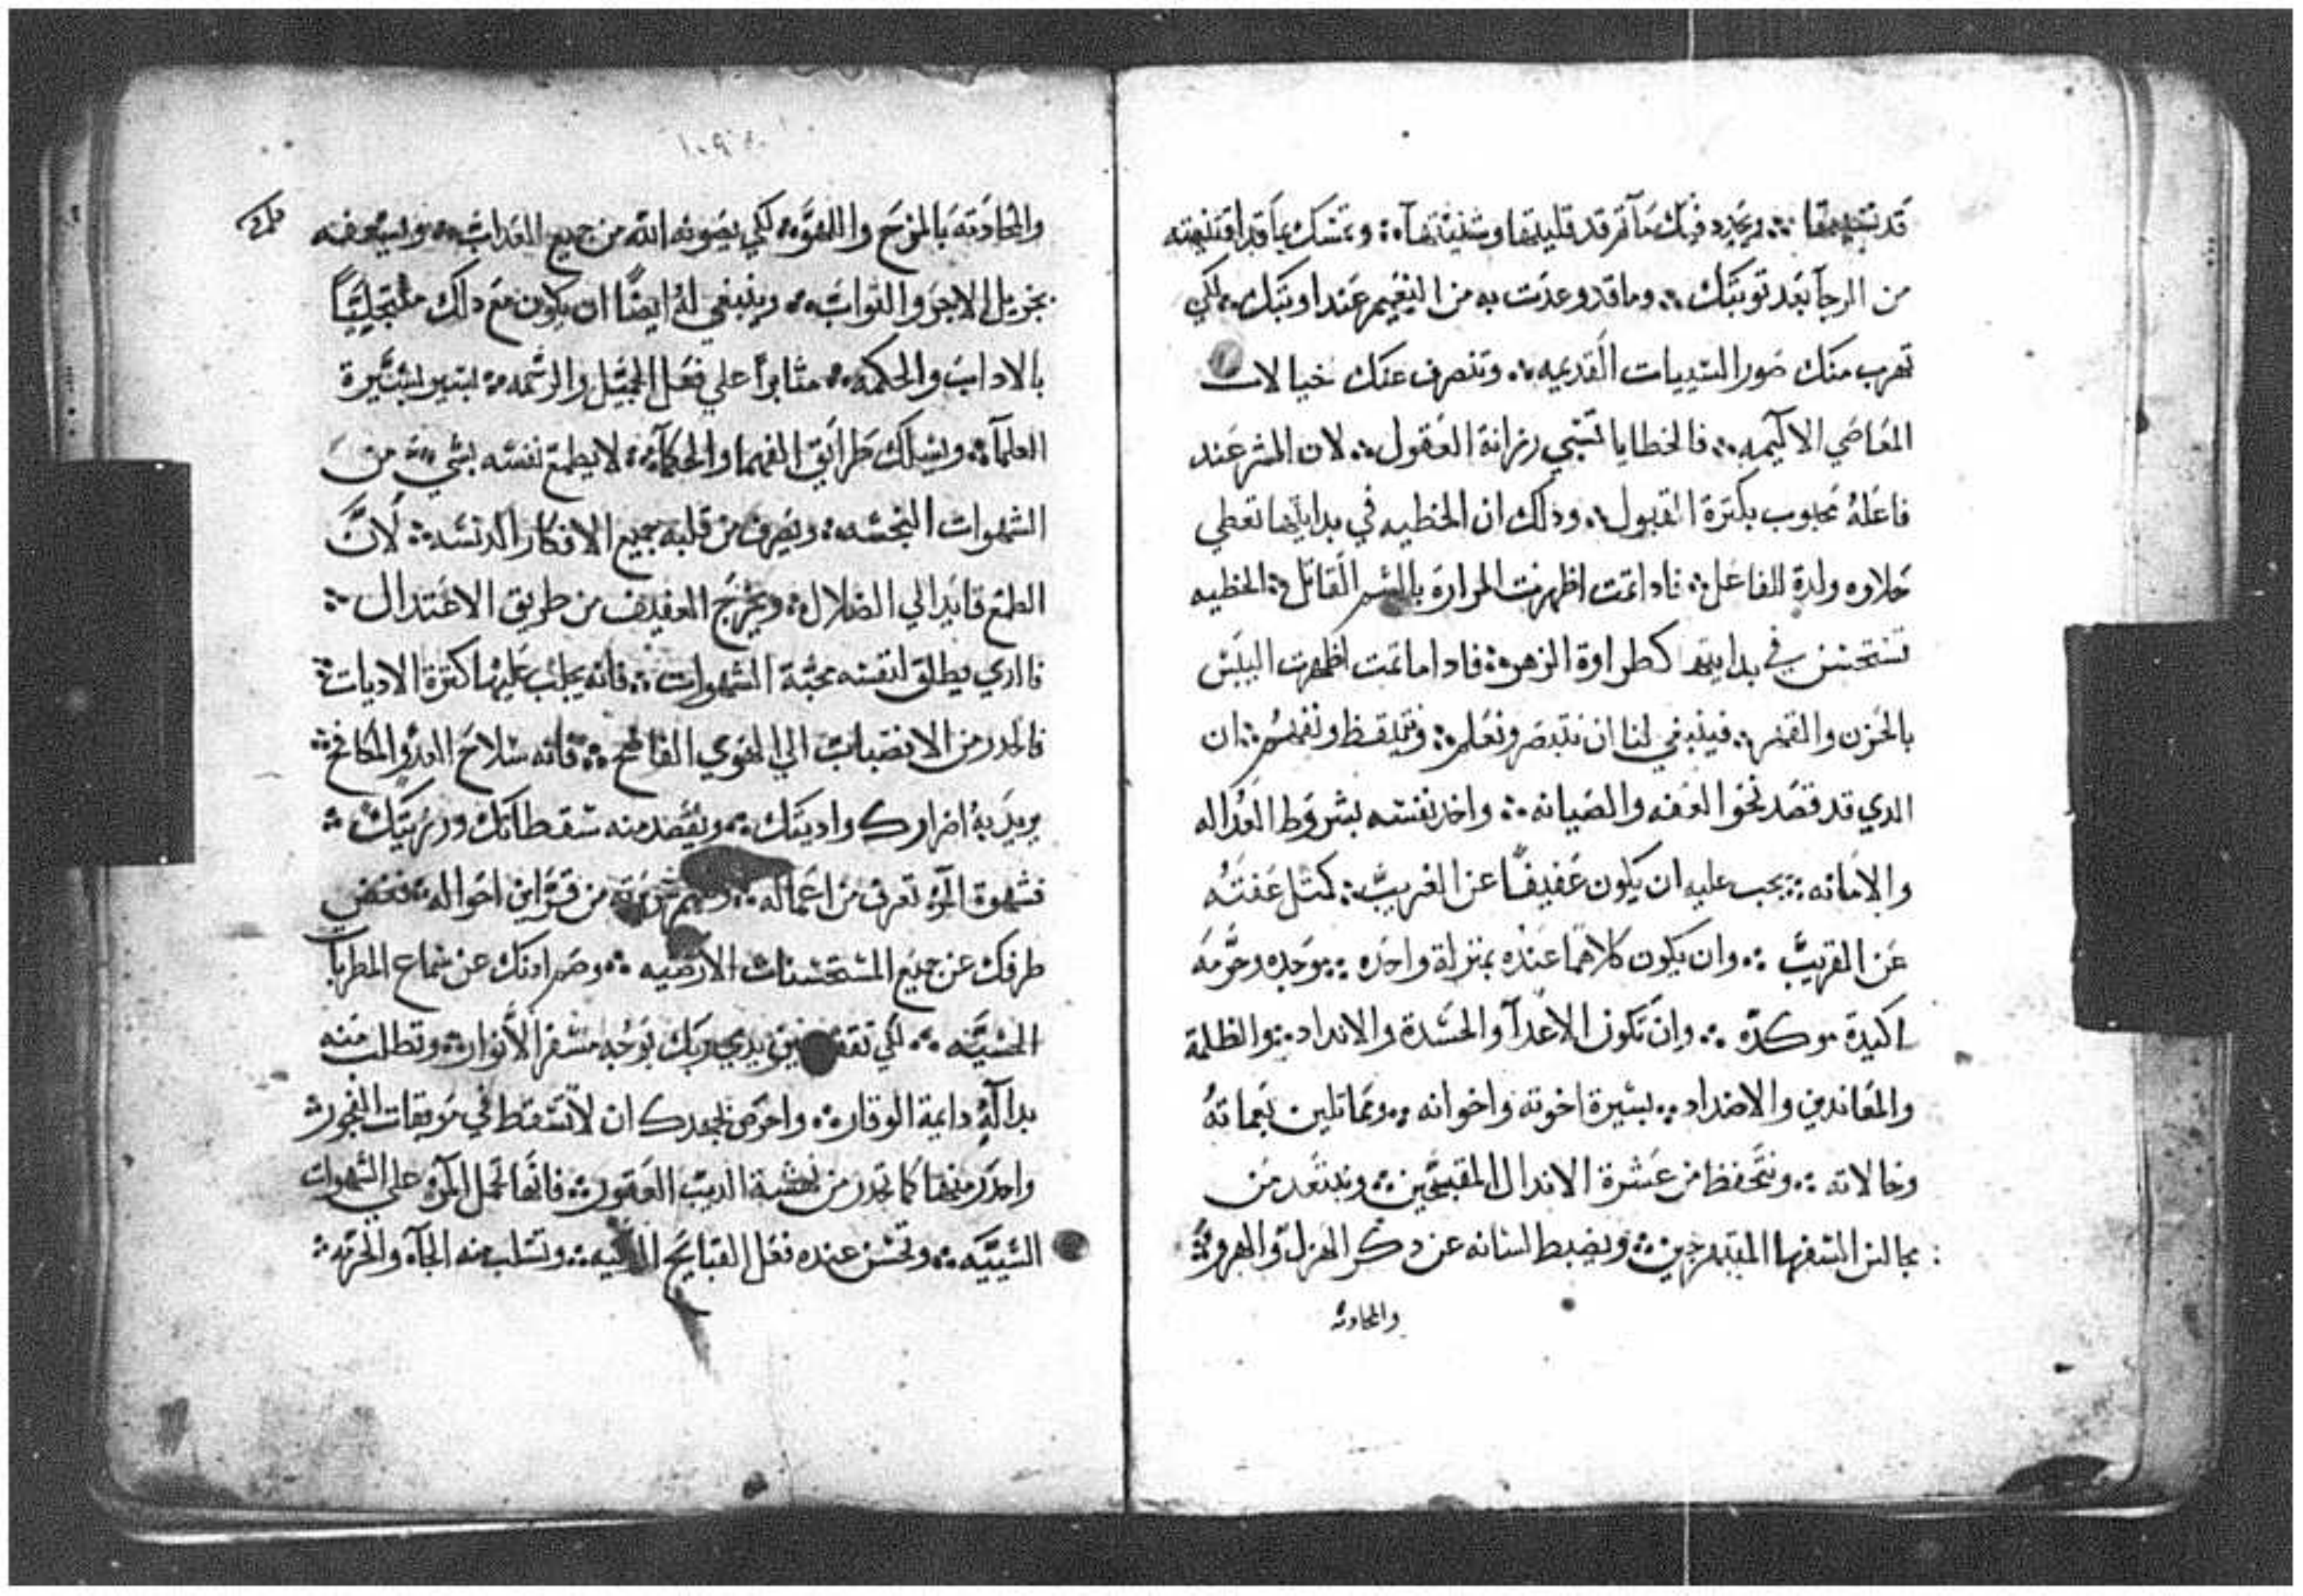 من الرجآ بعد توبتك ؞ وما قد وعدت به من النعيم عند اوبتك ؞ لكي
تهرب منك صور السييات القديمه ؞ وتنصرف عنك خيالات
المعاصي الاليمه ؞ فالخطايا تسبي رزانة العقول ؞ لان الشر عند
فاعله محبوب بكترة القبول ؞ ودلك ان الخطيه في بدايتها تعطي
حلاوه ولدة للفاعل ؞ فادا تمت اظهرت المرارة بالسم القاتل ؞ الخطيه
تستحسن في بدايتها كطراوة الزهره ؞ فادا ما تمت اظهرت اليبس
بالحزن والقهر ؞ فينبغي لنا ان نتبصر ونعلم ؞ ونتيقظ ونفهم ؞ ان
الدي قد قصد نحو العفه والصيانه ؞ واخد نفسه بشروط العداله
والامانه ؞ يجب عليه ان يكون عفيفًا عن الغريب ؞ كمتل عفته
عن القريب ؞ وان يكون كلاهما عنده بمنزلة واحده ؞ موحده وحرمه
اكيدة موكده ؞ وان تكون الاعدآ والحسدة والانداد ؞ والظلمة
والمعاندين والاضداد ؞ بسيرة اخوته واخوانه ؞ ومماتلين بعماته
وخالاته ؞ ونتحفظ من عشرة الاندال المقبحين ؞ ونبتعد من
مجالس السفها ؞ ويضبط لسانه عن دكر الهزل والهرو
والمحادته
والمحادته بالمزح واللهو ؞ لكي يصونه الله من جميع العداب ؞ ويسعفه
بجزيل الاجر والتواب ؞ وينبغي له ايضًا ان يكون مع دلك
بالاداب والحكمه ؞ متابرًا علي فعل الجميل والرحمه ؞ يسير بسيرة
العلمآ ؞ ويسلك طرايق الفهما والحكمآ ؞ لا يطمع نفسه بشي من
الشهوات النجسه ؞ ويصرف من قلبه جميع الافكار الدنسه ؞ لان
الطمع قايد الي الضلال ؞ ويخرج العفيف من طريق الاعتدال ؞
فالدي يطلق لنفسه محبة الشهوات ؞ فانه يجلب عليها كترة الاديات ؞
فالحدر من الانصباب الي الهوي الفاضح ؞ فانه سلاح العدو المكافح ؞
يريد به اضرارك واديتك ؞ ويقصد منه سقطاتك ورزيتك ؞
فشهوة المرء تعرف من اعماله ؞ من قراين احواله ؞ فغض
طرفك عن جميع المستحسنات الارضيه ؞ وصم ادنك عن سماع المطربا
الحسيه ؞ لكي تقف بين يدي ربك بوجه مسفر الانوار ؞ وتطلب منه
بدالة دايمة الوقار ؞ واحرص بجهدك ان لا تسقط في موبقات الفجور ؞
واحدر منها كما تحدر من نهشة الديب العقور ؞ فانها تحمل المرء علي الشهوات
؞ وتحسن عنده فعل القبايح ؞ وتسلب منه الجآه والحرمه ؞